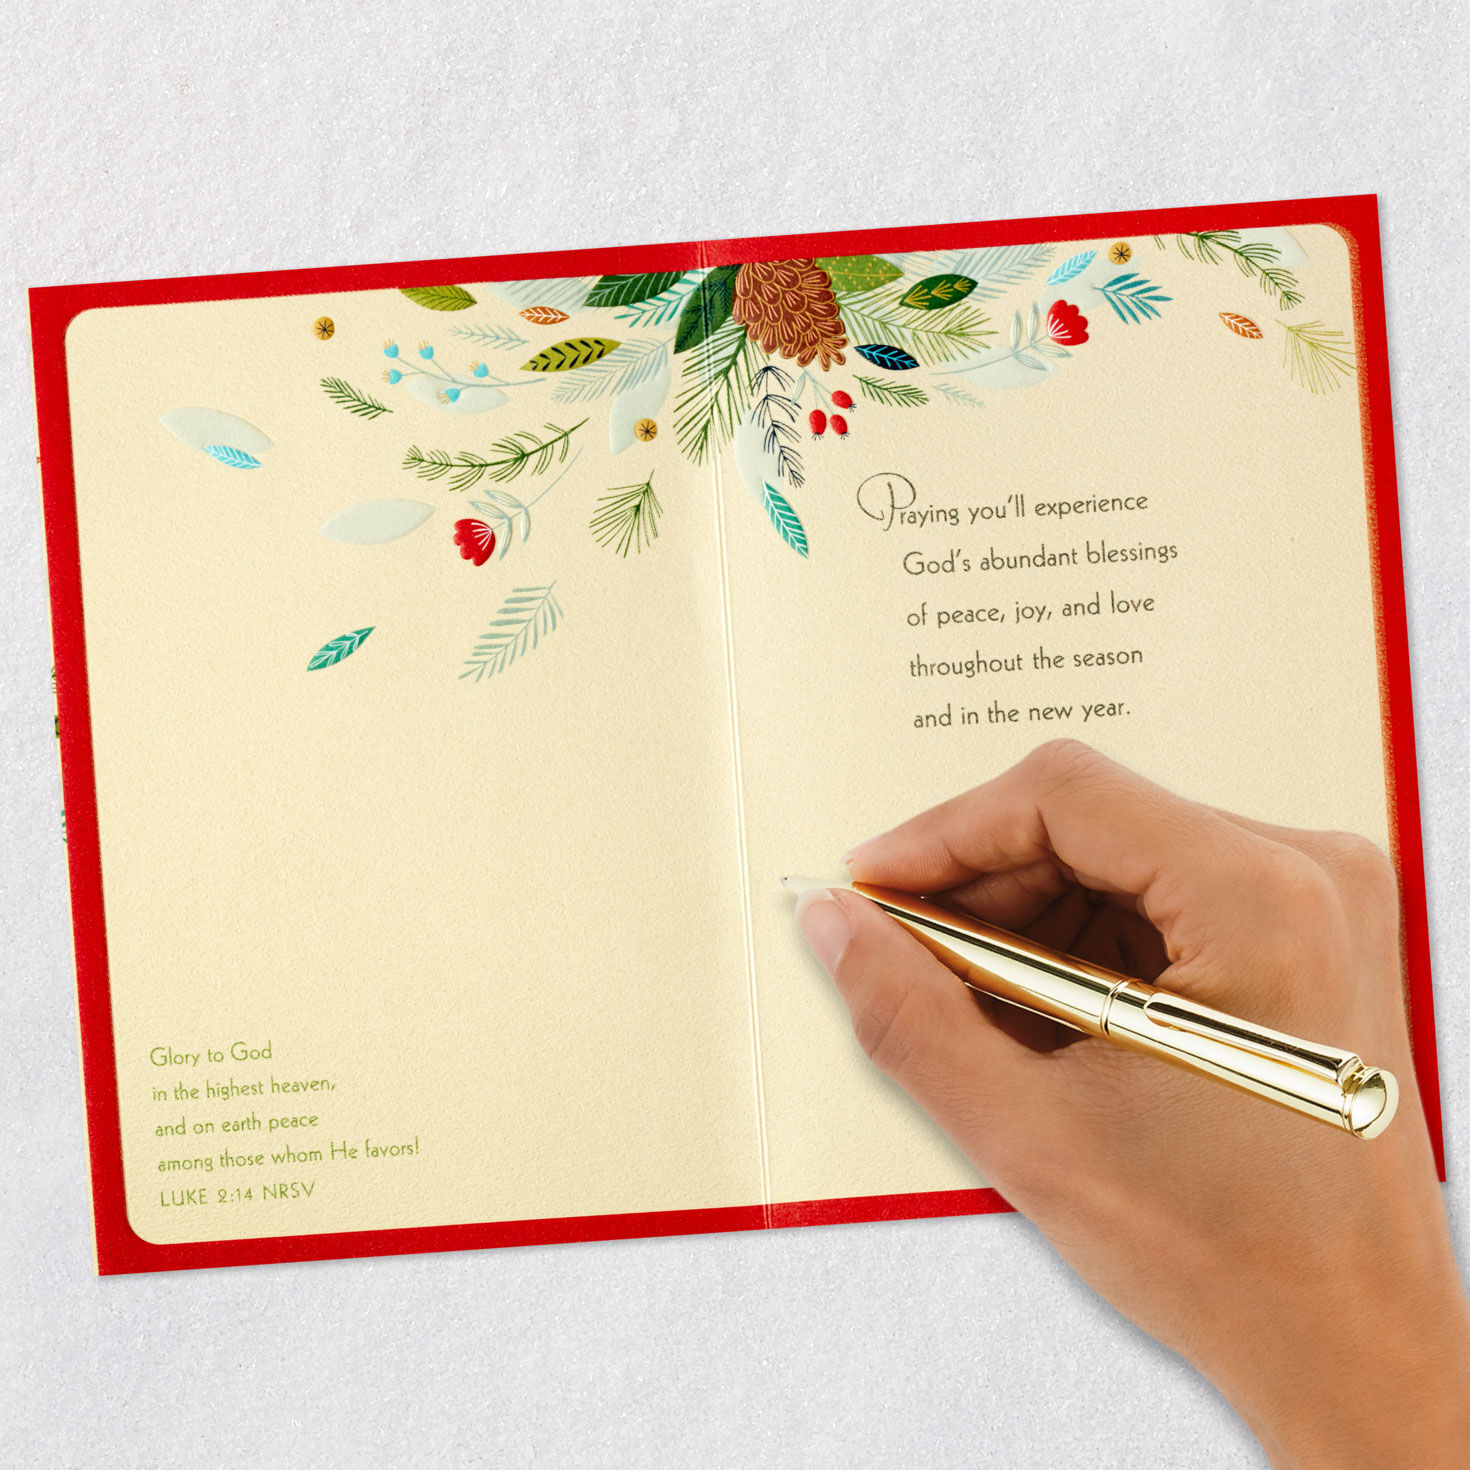 Praying you'll experience
God's abundant blessings
of peace, joy, and love
throughout the season
and in the new year.
Glory to God
in the highest heaven,
and on earth peace
among those whom He favors!
LUKE 2:14 NRSV